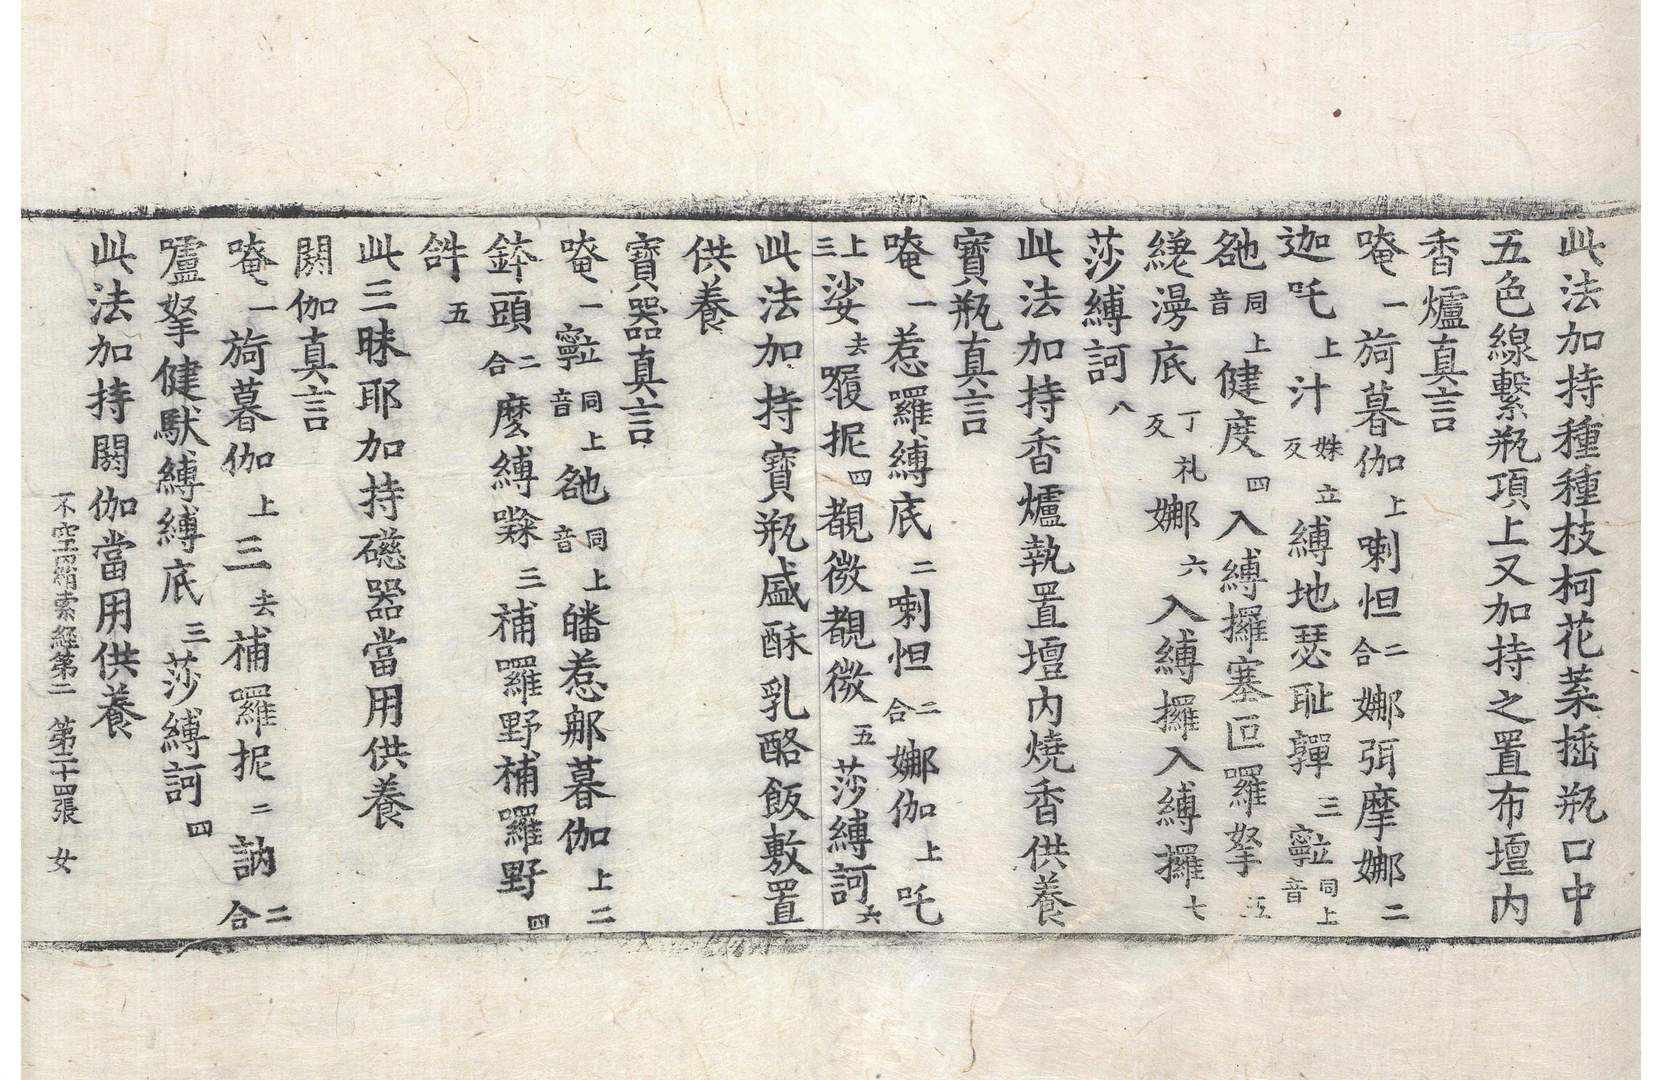 此法加持種種枝柯花菓揷瓶口中
五色線繫瓶項上又加持之置布壇內
香爐真言
唵一旖暮伽上喇怛二合娜弭摩娜二
迦吒上汁姝立反縛地瑟耻鞸三㝕同上音
䤈同上音健度四入縛攞塞叵羅拏五
繞漫底丁礼反娜六入縛攞入縛攞七
莎縛訶八
此法加持香爐執置壇內燒香供養
寶瓶真言
唵一惹羅縛底二喇怛二合娜伽上吒
上三娑去履抳四覩微覩微五莎縛訶六
此法加持寶瓶盛酥乳酪飯敷置
供養
寶器真言
唵一㝕同上音䤈同上音皤惹那暮伽上二
鉢頭二合麼縛㘑三補囉野補囉野四
𤙖五
此三昧耶加持磁器當用供養
閼伽真言
唵一旖暮伽上三去補囉抳二訥二合
嚧拏健馱縛縛底三莎縛訶四
此法加持閼伽當用供養
不空羂索經第二 第二十四張 女